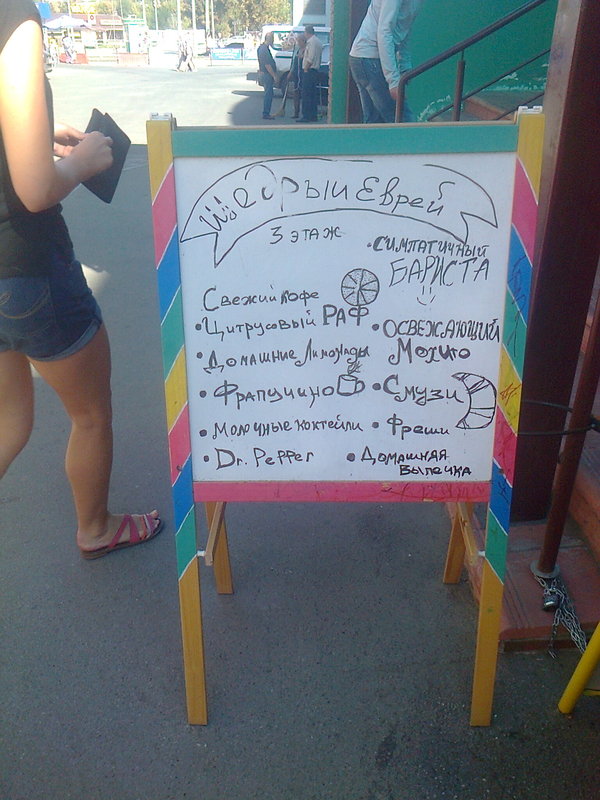 Щедрый Еврей
3 этаж
•Симпатичный
Бариста
Свежий кофе
•Цитрусовый Раф
•Домашние Лимонады
•Фрапучино
•Молочные коктейли
•Dr. Pepper
•Освежающий
Мохито
•Смузи
•Фреши
•Домашняя
Выпечка